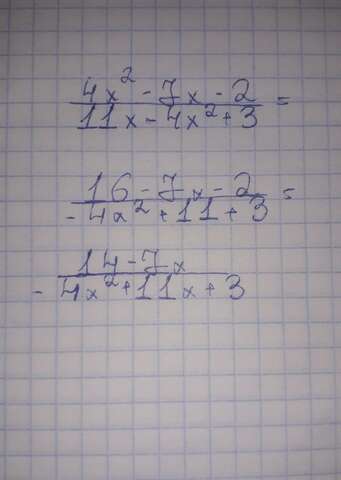 4x² - 7x - 2
11x - 4x² + 3 =
16 - 7x - 2
-4x² + 11 + 3 =
14 - 7x
- 4x² + 11x + 3